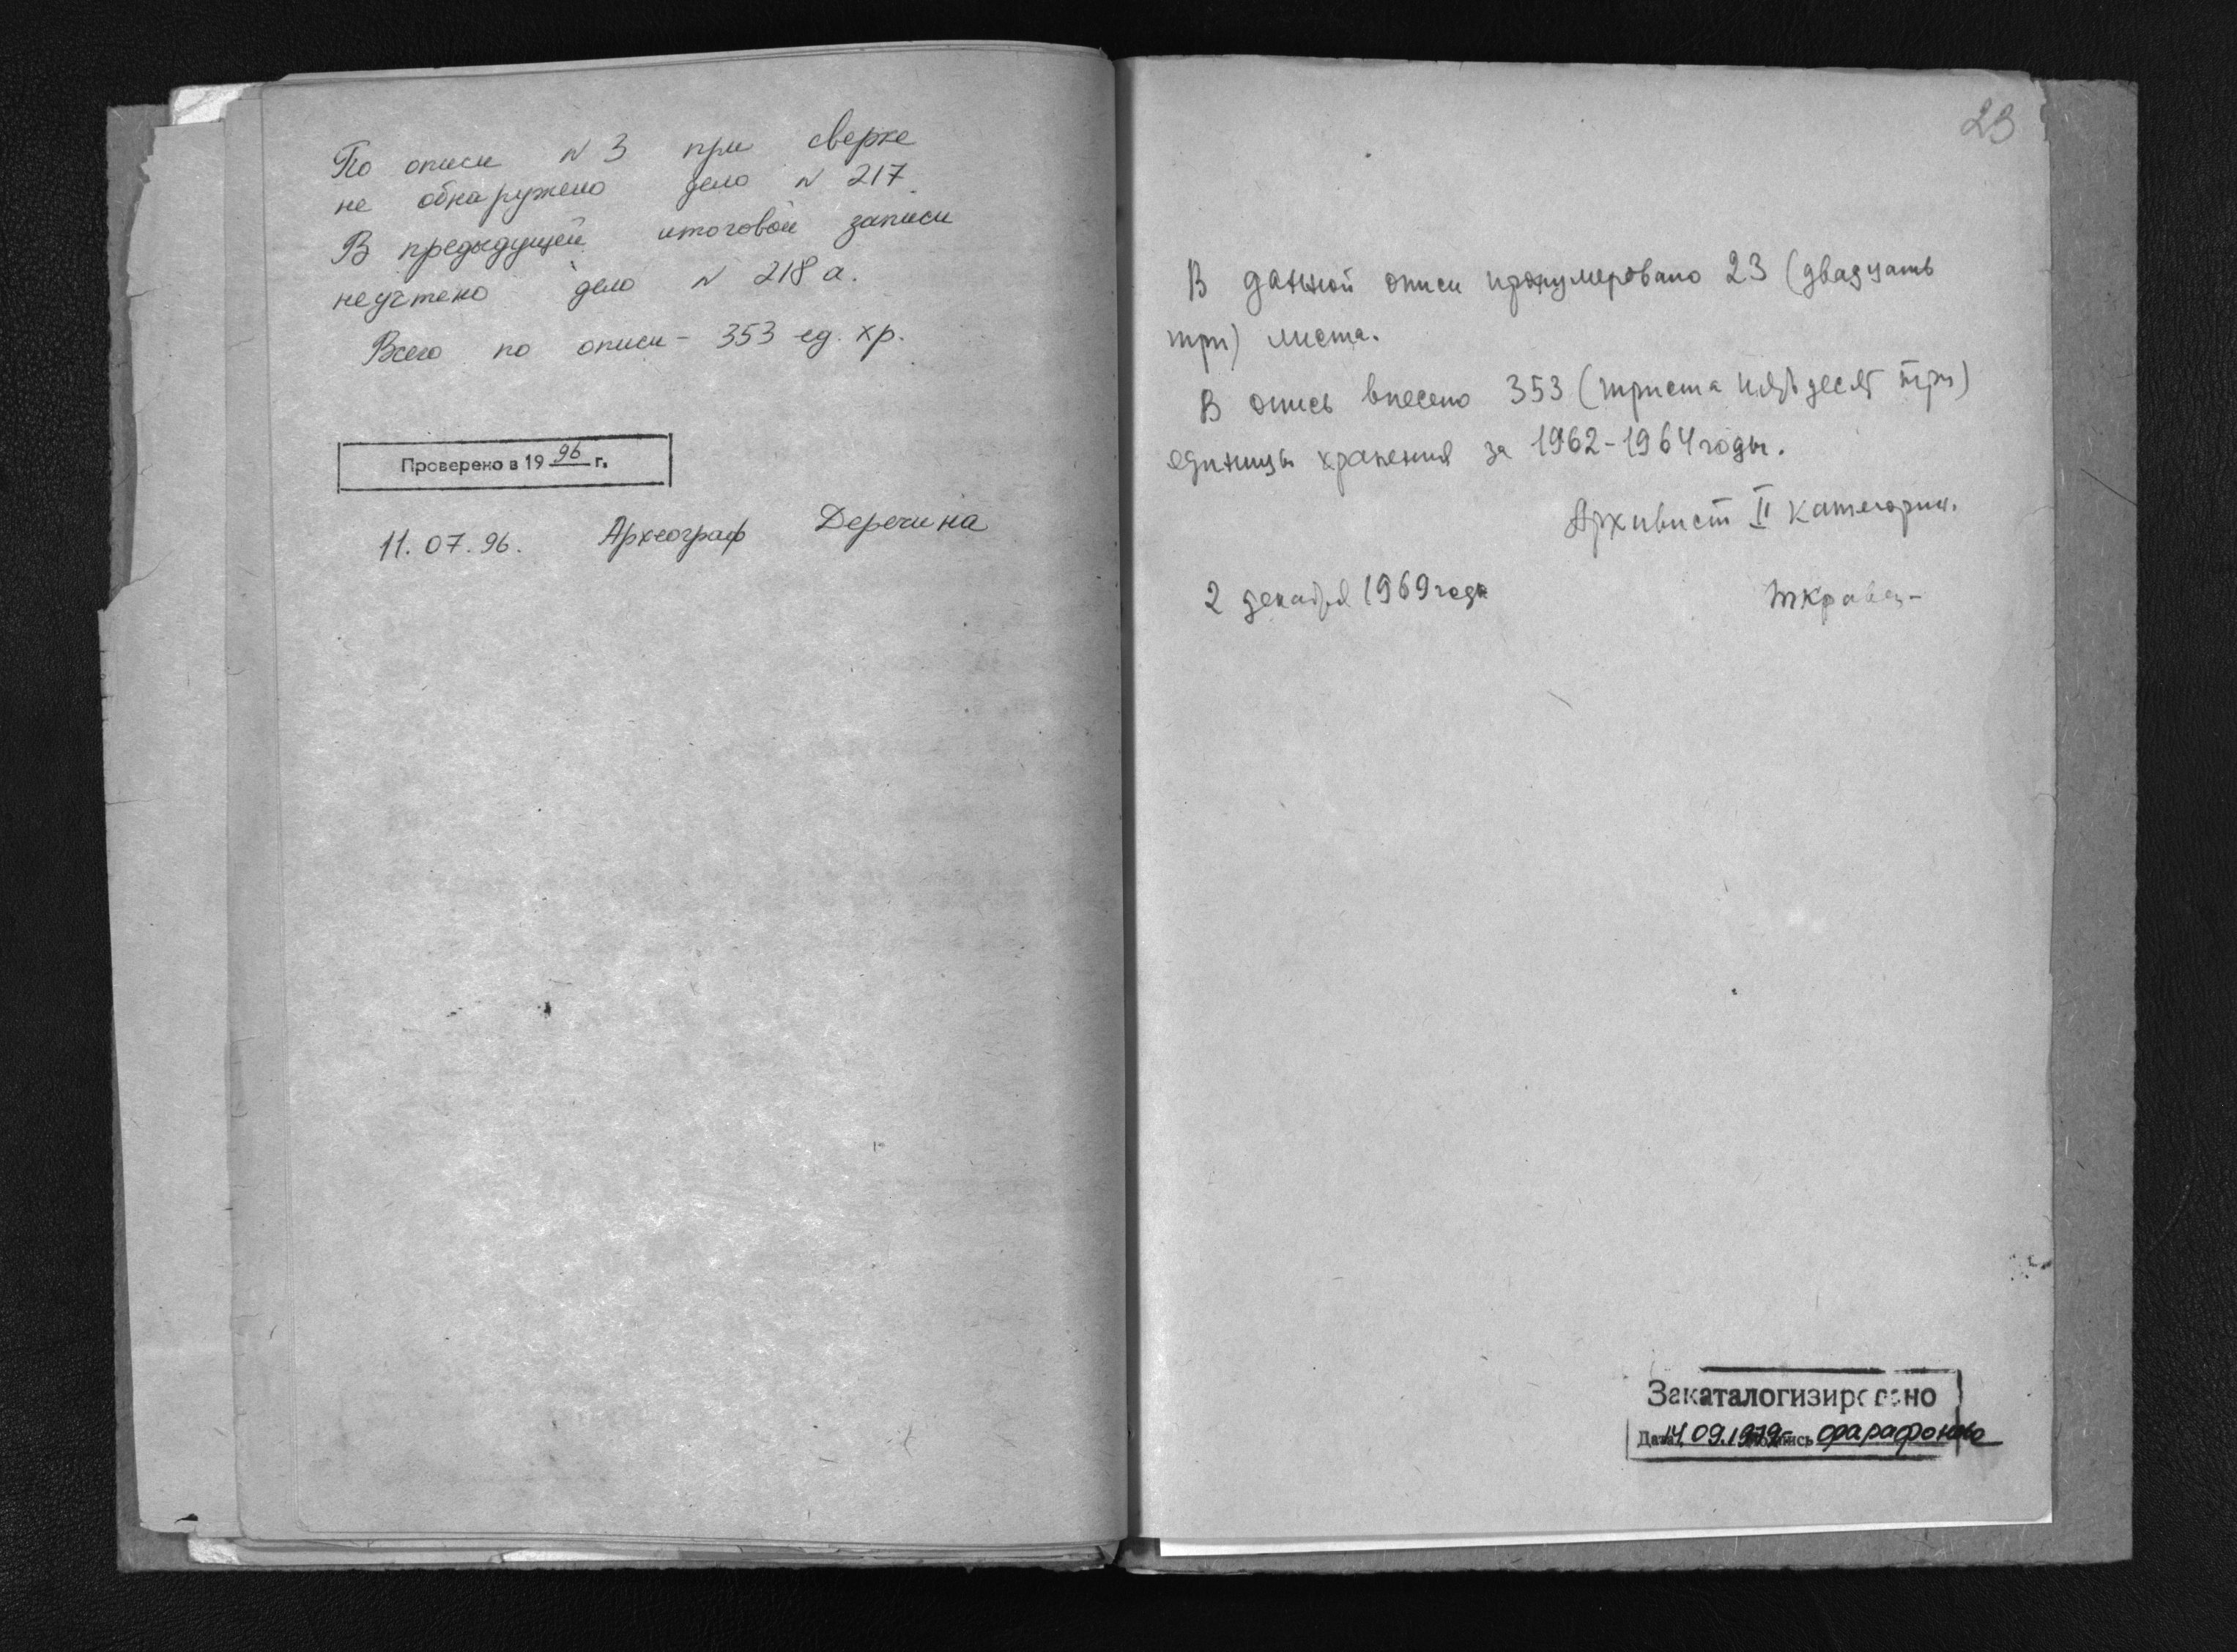 По описи N 3 при сверке
не обнаружено дело N 217.
В предыдущей итоговой записи
неучтено дело N 218 а.
Всего по описи - 353 ед. хр.
Проверено в 1996 г.
11.07.96. Археограф Деречина
23
В данной описи пронумеровано 23 (двадцать
три) листа.
В опись внесено 353 (триста пятьдесят три)
единицы хранения за 1962-1964 годы.
Архивист II категории.
2 декабря 1969 года
Закаталогизировано
Дата 14.09.1979 Подпись